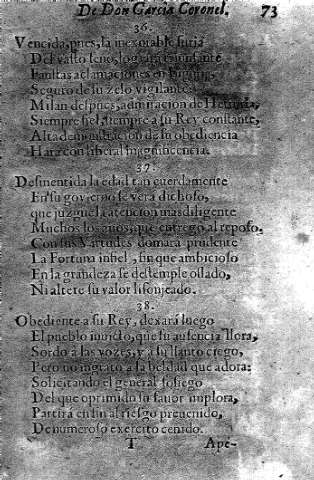 De Don Garcia Coronel. 73
36.
Vencida, pues, la inexorable furia
Del vasto seno, logrará triunfante
Faustas aclamaciones en
Seguro de su zelo vigilante:
Milan despues, admiracion de
Siempre fiel, siempre a su Rey constante,
Alta demonstracion de su obediencia
Hará con liberal magnificencia.
37.
Desmentida la edad tan cuerdamente
En su govierno se verá dichoso,
que juzgue la atencion mas diligente
Muchos los años que entregò al reposo.
Con sus Virtudes domarà prudente
La Fortuna infiel, sin que ambicioso
En la grandeza se destemple osado,
Ni altere su valor lisonjeado.
38.
Obediente a su Rey, dexará luego
El pueblo invicto, que su ausencia llora,
Sordo a las vozes, y a su llanto ciego,
Pero no ingrato a la beldad que adora:
Solicitando el general sosiego
Del que oprimido su favor implora,
Partirá en fin al riesgo prevenido,
De numeroso exercito ceñido.
T Ape-